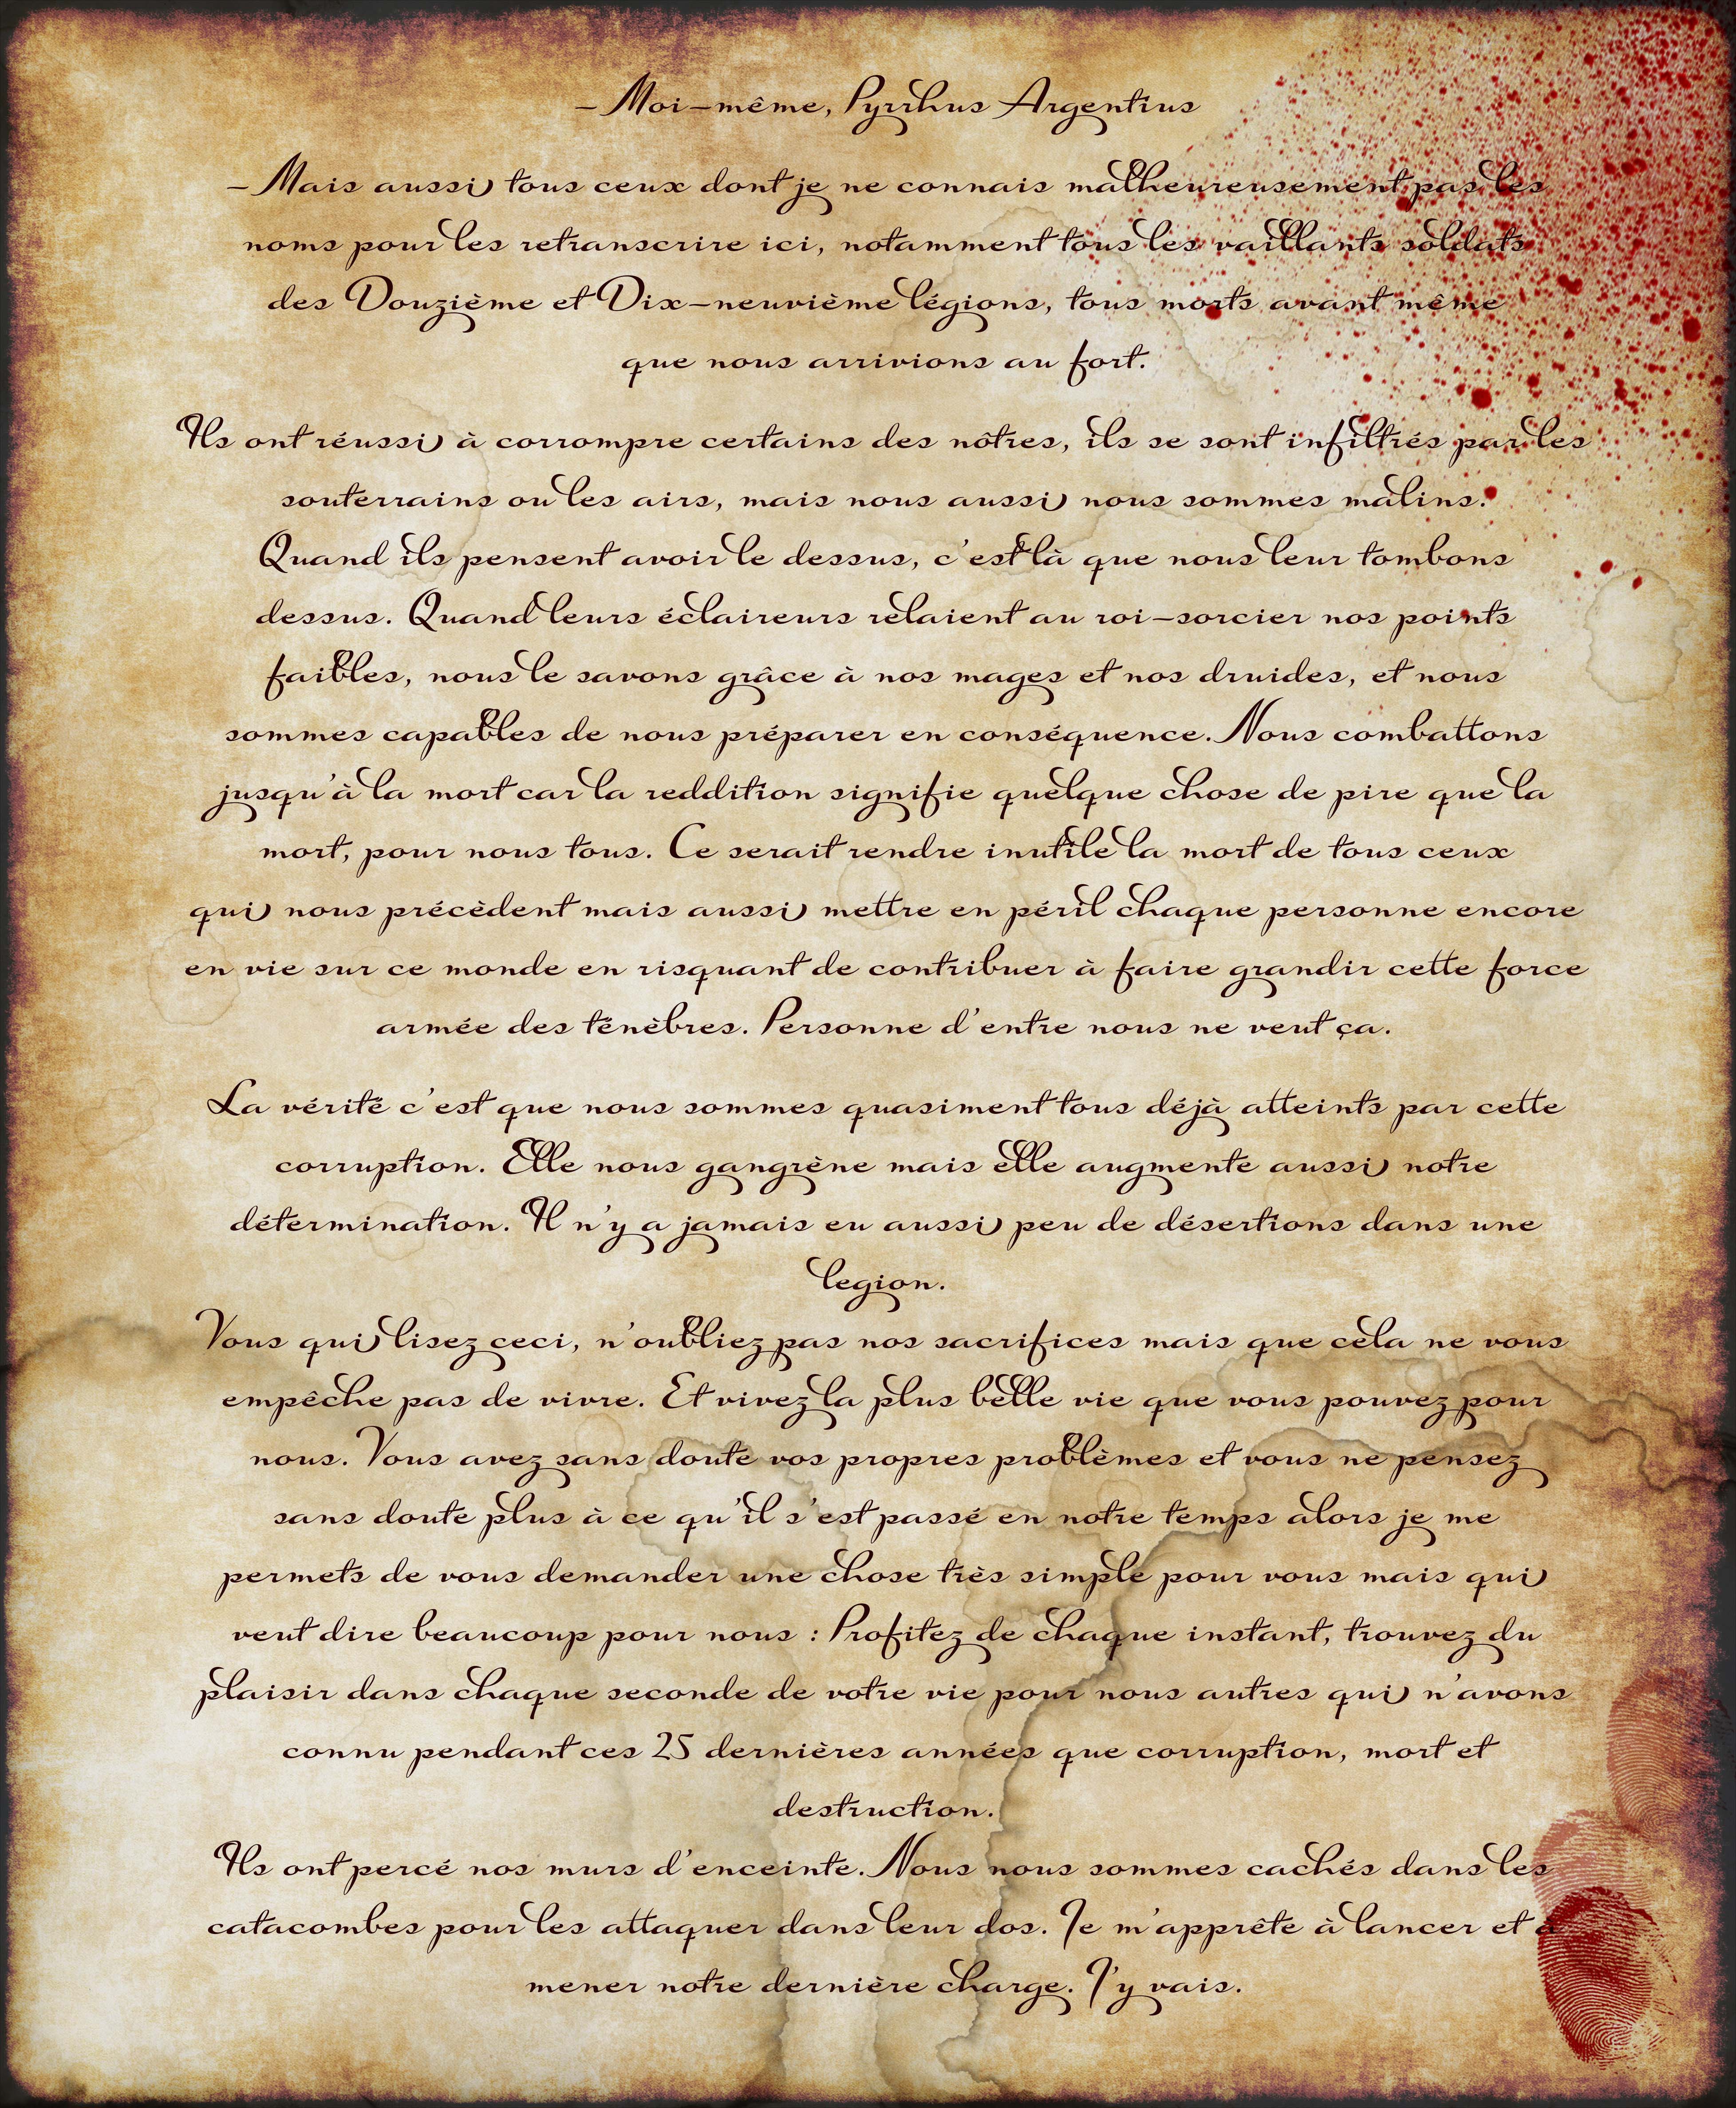 - Moi-même, Pyrrhus Argentius
- Mais aussi tous ceux dont je ne connais malheureusement pas les
noms pour les retranscrire ici, notamment tous les vaillants soldats
des Douzième et Dix-neuvième légions, tous morts avant même
que nous arrivions au fort.
Ils ont réussi à corrompre certains des nôtres, ils se sont infiltrés par les
souterrains ou les airs, mais nous aussi nous sommes malins.
Quand ils pensent avoir le dessus, c'est là que nous leur tombons
dessus. Quand leurs éclaireurs relaient au roi-sorcier nos points
faibles, nous le savons grâce à nos mages et nos druides, et nous
sommes capables de nous préparer en conséquence. Nous combattons
jusqu'à la mort car la reddition signifie quelque chose de pire que la
mort, pour nous tous. Ce serait rendre inutile la mort de tous ceux
qui nous précèdent mais aussi mettre en péril chaque personne encore
en vie sur ce monde en risquant de contribuer à faire grandir cette force
armée des ténèbres. Personne d'entre nous ne veut ça.
La vérité c'est que nous sommes quasiment tous déjà atteints par cette
corruption. Elle nous gangrène mais elle augmente aussi notre
détermination. Il n'y a jamais eu aussi peu de désertions dans une
legion.
Vous qui lisez ceci, n'oubliez pas nos sacrifices mais que cela ne vous
empêche pas de vivre. Et vivez la plus belle vie que vous pouvez pour
nous. Vous avez sans doute vos propres problèmes et vous ne pensez
sans doute plus à ce qu'il s'est passé en notre temps alors je me
permets de vous demander une chose très simple pour vous mais qui
veut dire beaucoup pour nous : Profitez de chaque instant, trouvez du
plaisir dans chaque seconde de votre vie pour nous autres qui n'avons
connu pendant ces 25 dernières années que corruption, mort et
destruction.
Ils ont percé nos murs d'enceinte. Nous nous sommes cachés dans les
catacombes pour les attaquer dans leur dos. Je m'apprête à lancer et à
mener notre dernière charge. J'y vais.